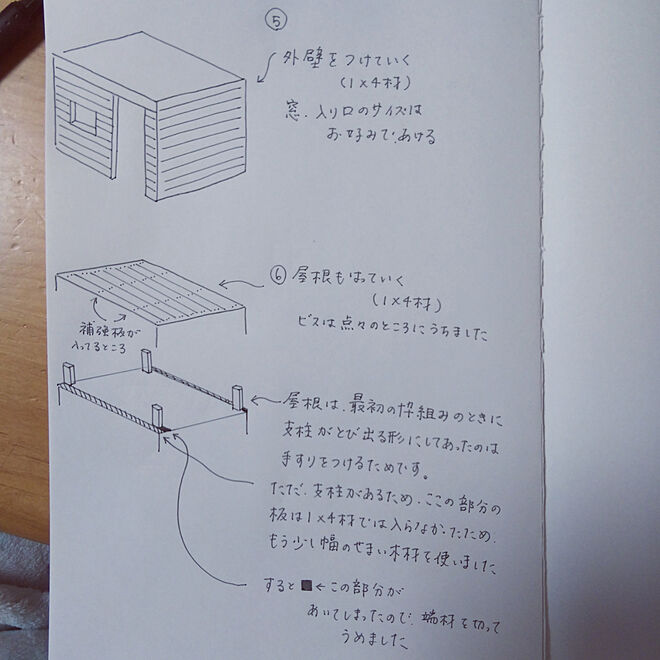 ⑤
外壁をつけていく
(1×4材)
窓、入り口のサイズは
お好みであける
⑥ 屋根もはっていく
(1×4材)
ビスは点々のところにうちました
補強板が
入ってるところ
屋根は、最初の枠組みのときに
支柱がとび出る形にしてあったのは
手すりをつけるためです。
ただ、支柱があるため、ここの部分の
板は1×4材では入らなかったため、
もう少し幅のせまい木材を使いました
すると■←この部分が
あいてしまったので、端材を切って
うめました